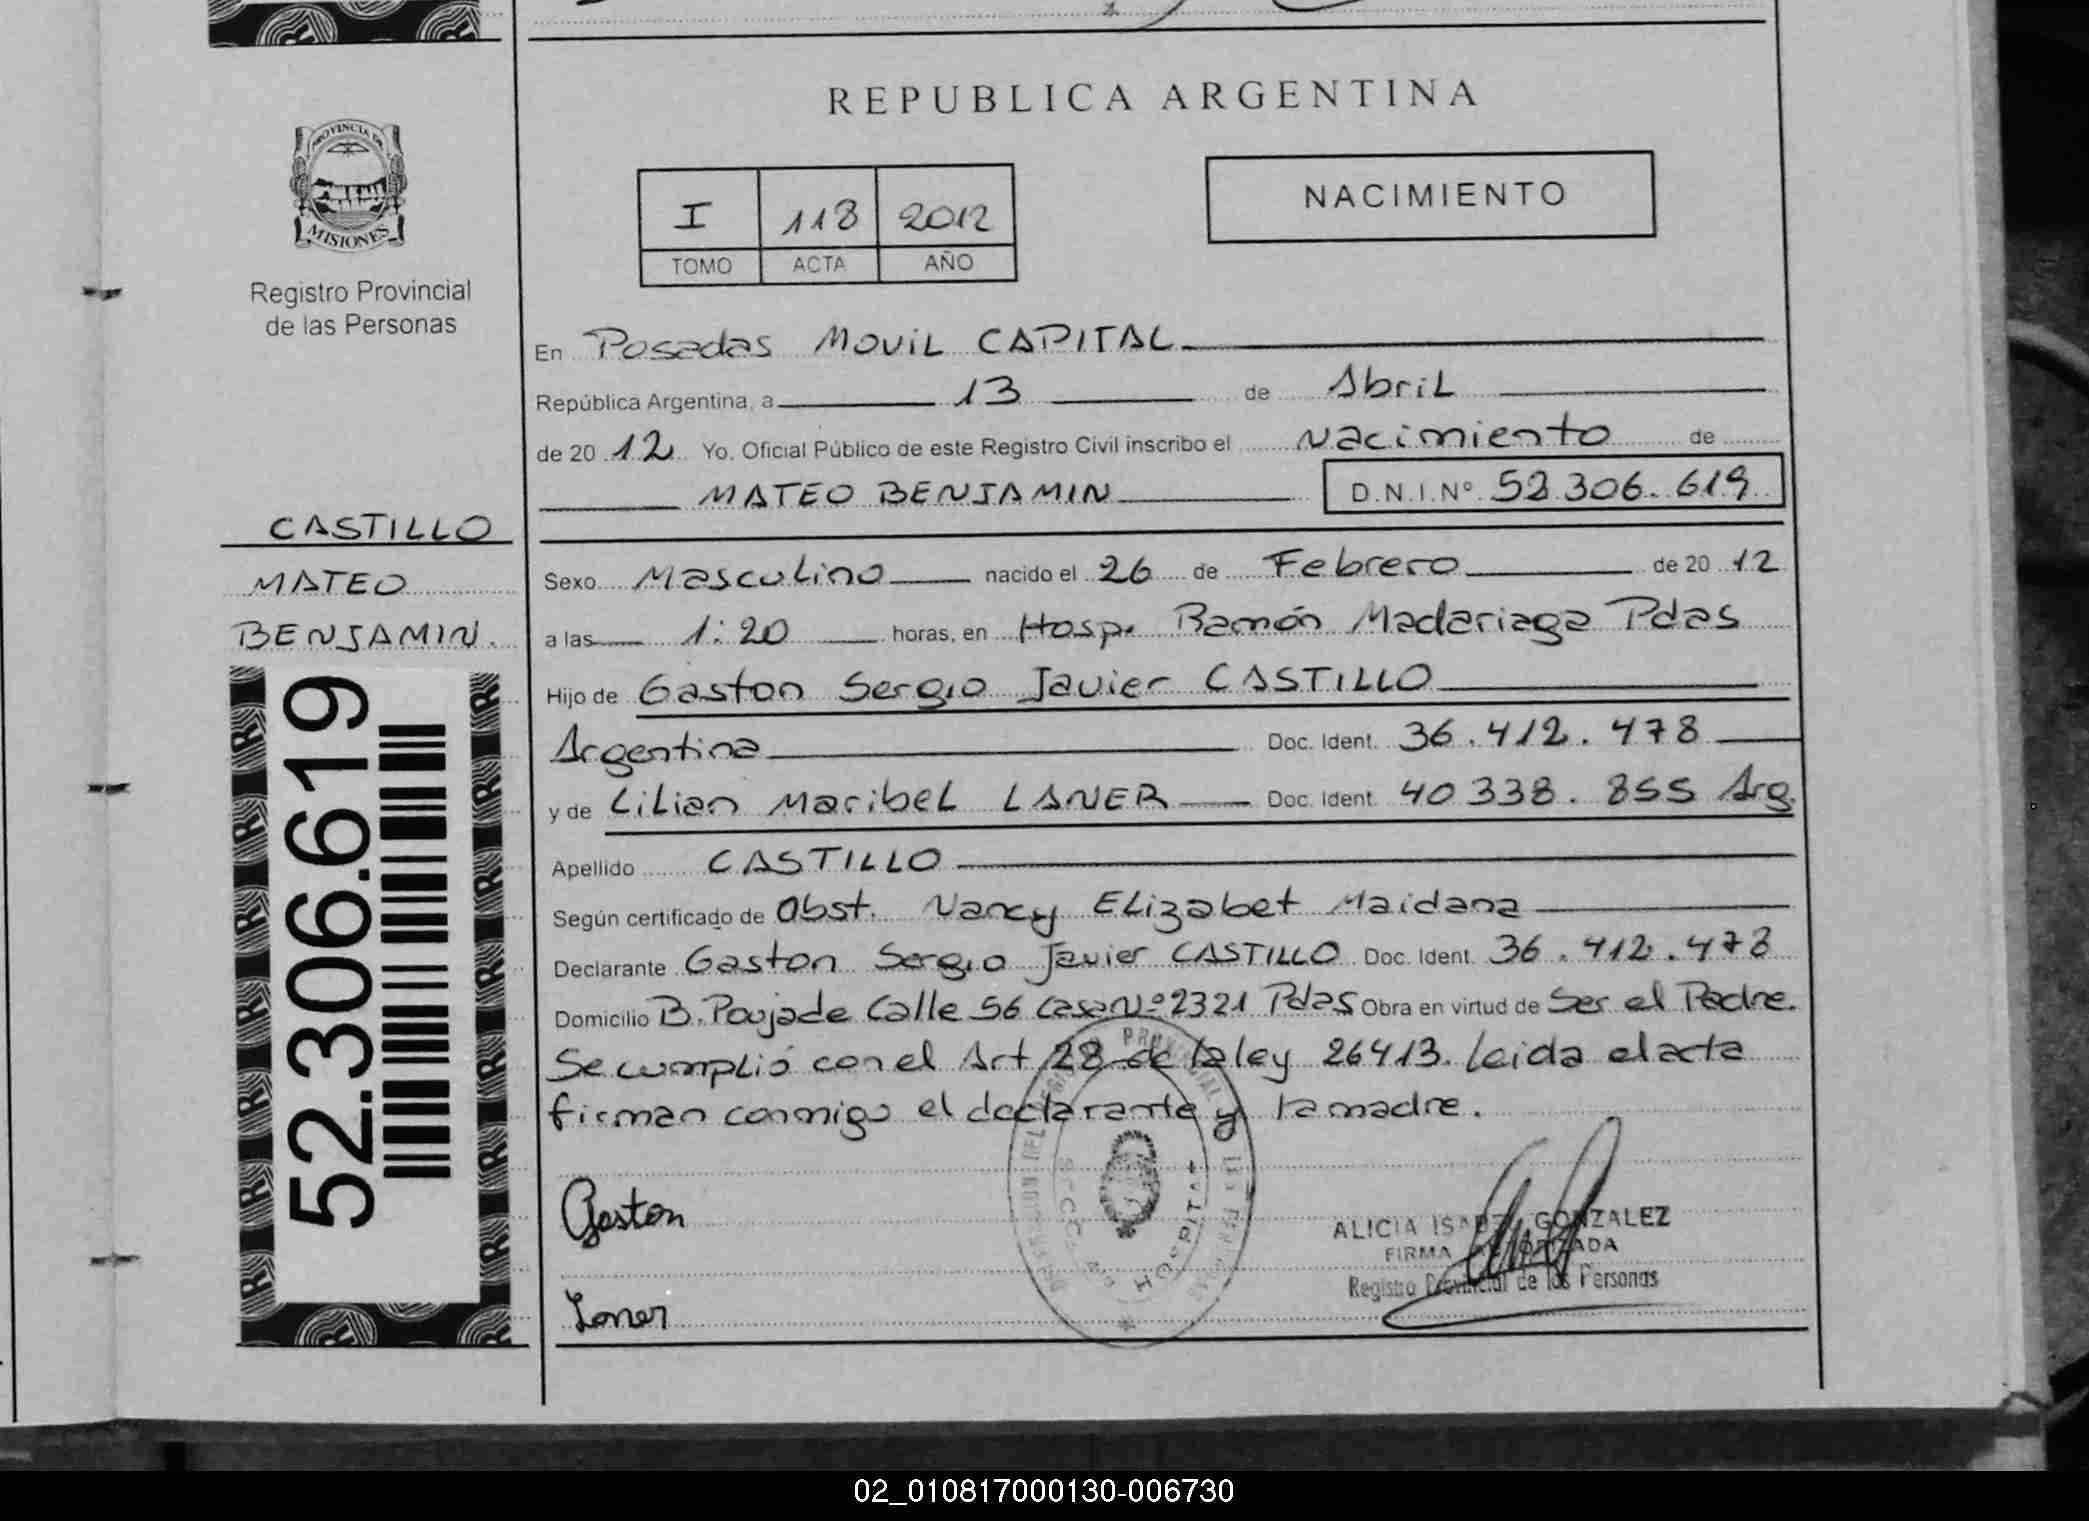 REPUBLICA ARGENTINA
PROVINCIA DE
MISIONES
Registro Provincial
de las Personas
I 118 2012
TOMO ACTA AÑO
NACIMIENTO
En Posadas MOVIL CAPITAL
República Argentina, a 13 de Abril
de 20 12 Yo, Oficial Público de este Registro Civil inscribo el Nacimiento de
MATEO BENJAMIN D.N.I.Nº 52.306.619
CASTILLO
MATEO
BENJAMIN.
52.306.619
Sexo Masculino nacido el 26 de Febrero de 20 12
a las 1:20 horas, en Hosp. Ramón Madariaga Pdas
Hijo de Gaston Sergio Javier CASTILLO
Argentina Doc. Ident. 36.412.478
y de Lilian Maribel LANER Doc. Ident. 40338.855 Arg.
Apellido CASTILLO
Según certificado de Obst. Nancy Elizabet Maidana
Declarante Gaston Sergio Javier CASTILLO Doc. Ident. 36.412.478
Domicilio B. Poujade Calle 56 Casa Nº 2321 Pdas Obra en virtud de Ser el Padre.
Se cumplió con el Art 28 de la ley 26413. Leida el acta
firman conmigo el declarante y la madre.
Gaston
Laner
HOSPITAL
ALICIA ISABEL GONZALEZ
FIRMA AUTORIZADA
Registro Provincial de las Personas
02_010817000130-006730